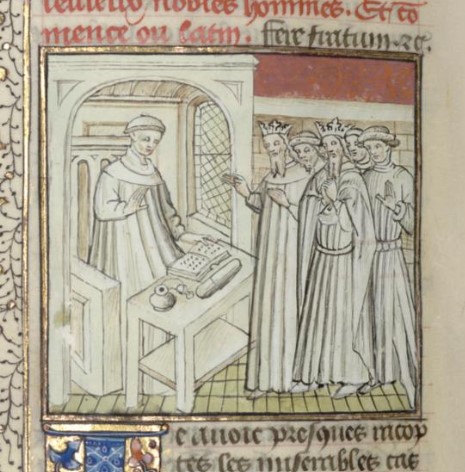 nobles hommes. Et cō
mence ou latin. fere
e auoie presques racōp
tes les miserables cas